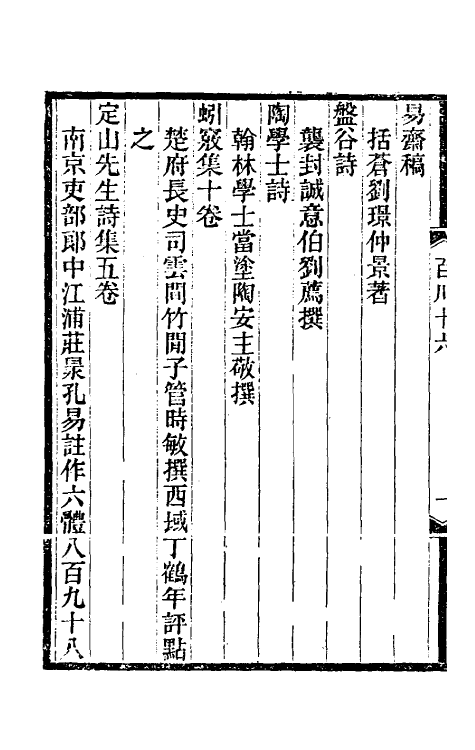 易齋稿
括蒼劉璟仲景著
盤谷詩
襲封誠意伯劉廌撰
陶學士詩
翰林學士當塗陶安主敬撰
蚓竅集十卷
楚府長史司雲間竹閒子管時敏撰西域丁鶴年評點
之
定山先生詩集五卷
南京吏部郎中江浦莊㫤孔易註作六體八百九十八
百川十六
一